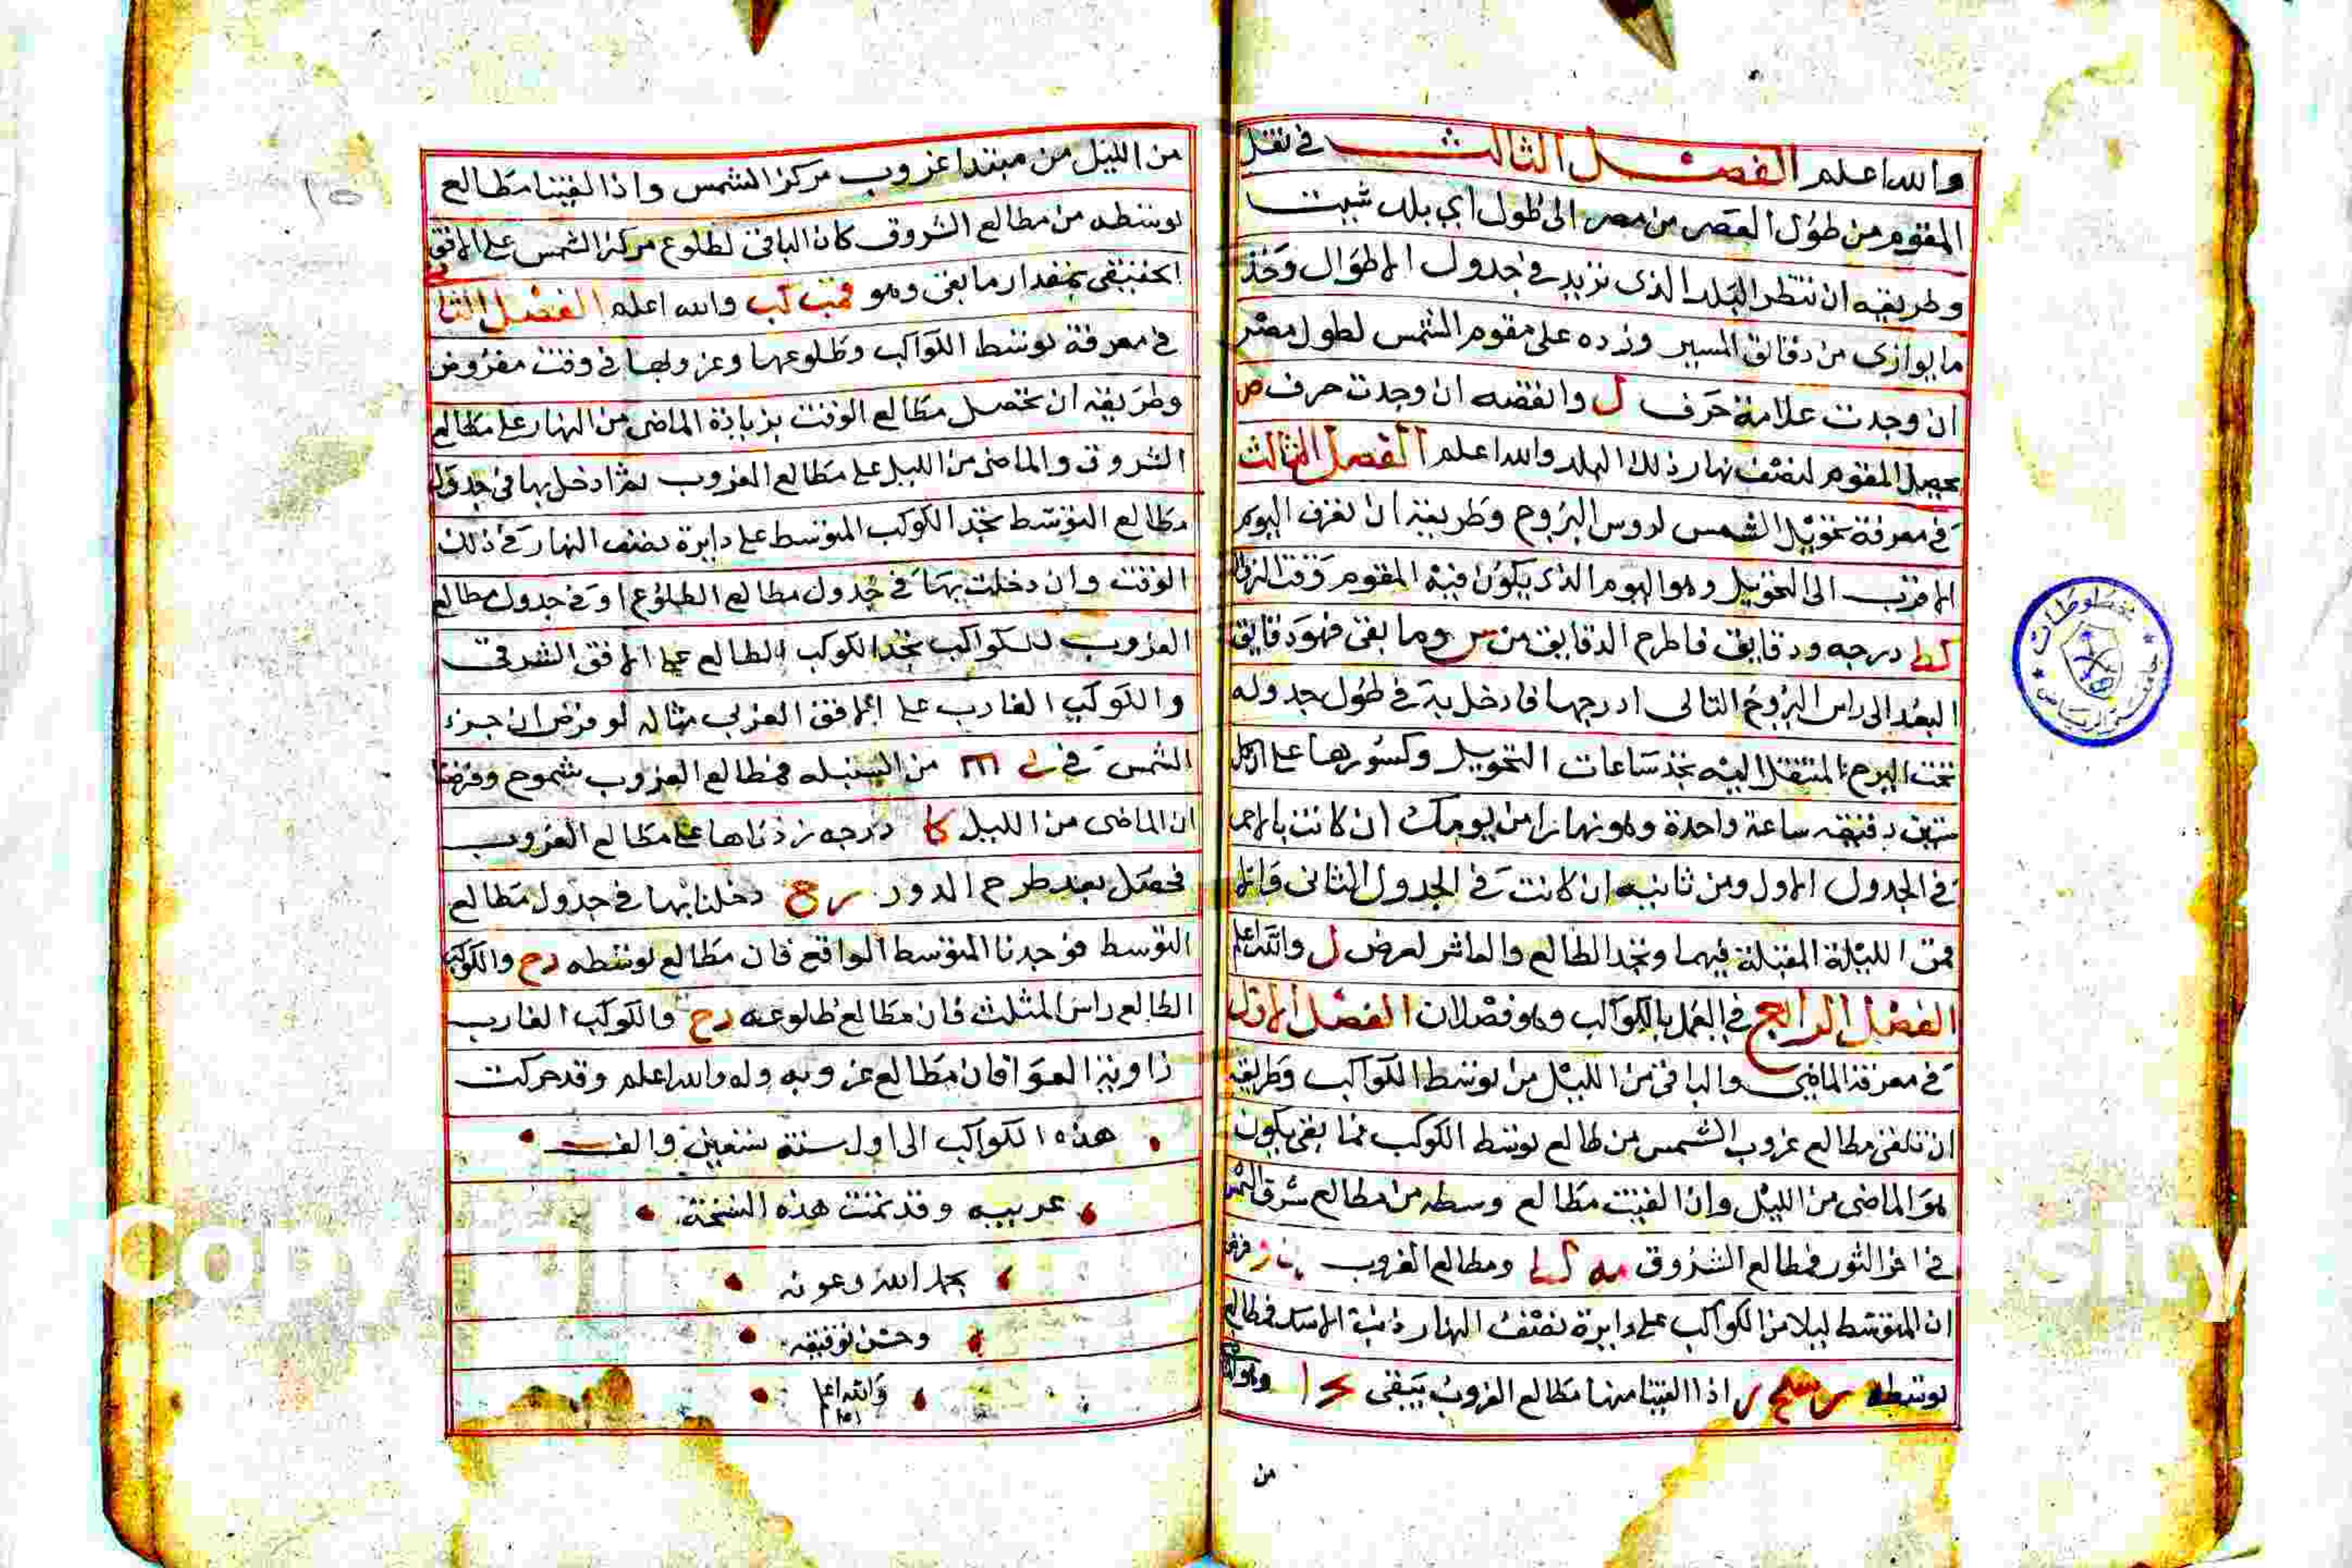 والله اعلم الفصل الثالث في نقل
المقوم من طول العصر من مصر الى طول اي بلد شيت
وطريقه ان تنظر البلد الذى تريد في جدول الاطوال وخذ
ما يوازى من دقائق المسير وزده على مقوم الشمس لطول مصر
ان وجدت علامة حرف ل وانقصه ان وجدت حرف ص
يحصل المقوم لنصف نهار ذلك البلد والله اعلم الفصل الثالث
في معرفة تحويل الشمس لروس البروج وطريقه ان تعرف اليوم
الاقرب الى التحويل وهو اليوم الذى يكون فيه المقوم وقت الزوال
كط درجه ودقايق فاطرح الدقايق من س وما بقى فهو دقايق
البعد الى راس البروج التالى ادرجها فادخل به في طول جدوله
تحت البرج المنتقل اليه تجد ساعات التحويل وكسورها على ان كل
ستين دقيقه ساعة واحدة وهو نهارا من يومك ان كانت بالاحمر
في الجدول الاول ومن ثانيه ان كانت في الجدول الثانى والا
فمن الليلة المقبلة فيهما وتجد الطالع والعاشر لعرض ل والله اعلم
الفصل الرابع في العمل بالكواكب وهو فصلان الفصل الاول
في معرفة الماضى والباقى من الليل من توسط الكواكب وطريقه
ان تلقى مطالع غروب الشمس من طالع توسط الكوكب فما بقى يكون
هو الماضى من الليل واذا القيت مطالع وسطه من مطالع شرق الشمس
في اخر الثور فمطالع الشروق مه كط ومطالع الغروب
ان المتوسط ليلا من الكواكب على دايرة نصف النهار ذنب الاسد فمطالع
توسطه اذا القينا منها مطالع الغروب يبقى
من
من الليل من مبتدا غروب مركز الشمس واذا القينا مطالع
توسطه من مطالع الشروق كان الباقى لطلوع مركز الشمس على الافق
الحقيقى بمقدار ما بقى وهو والله اعلم الفصل الثانى
في معرفة توسط الكواكب وطلوعها وغروبها في وقت مفروض
وطريقه ان تحصل مطالع الوقت بزيادة الماضى من النهار على مطالع
الشروق والماضى من الليل على مطالع الغروب ثم ادخل بها في جدول
مطالع التوسط تجد الكوكب المتوسط على دايرة نصف النهار في ذلك
الوقت وان دخلت بها في جدول مطالع الطلوع او في جدول مطالع
الغروب للكواكب تجد الكوكب الطالع على الافق الشرقى
والكوكب الغارب على الافق الغربى مثاله لو فرض ان جزء
الشمس في من السنبله فمطالع الغروب شموح وفرضنا
ان الماضى من الليل كا درجه زدناها على مطالع الغروب
فحصل بعد طرح الدور رح دخلنا بها في جدول مطالع
التوسط فوجدنا المتوسط الواقع فان مطالع توسطه رح والكوكب
الطالع راس المثلث فان مطالع طلوعه رح والكوكب الغارب
زاوية العوا فان مطالع غروبه وله والله اعلم وقد حركت
هذه الكواكب الى اول سنة تسعين والف
عربيه وقد تمت هذه النسخة
بحمد الله وعونه
وحسن توفيقه
والله اعلم